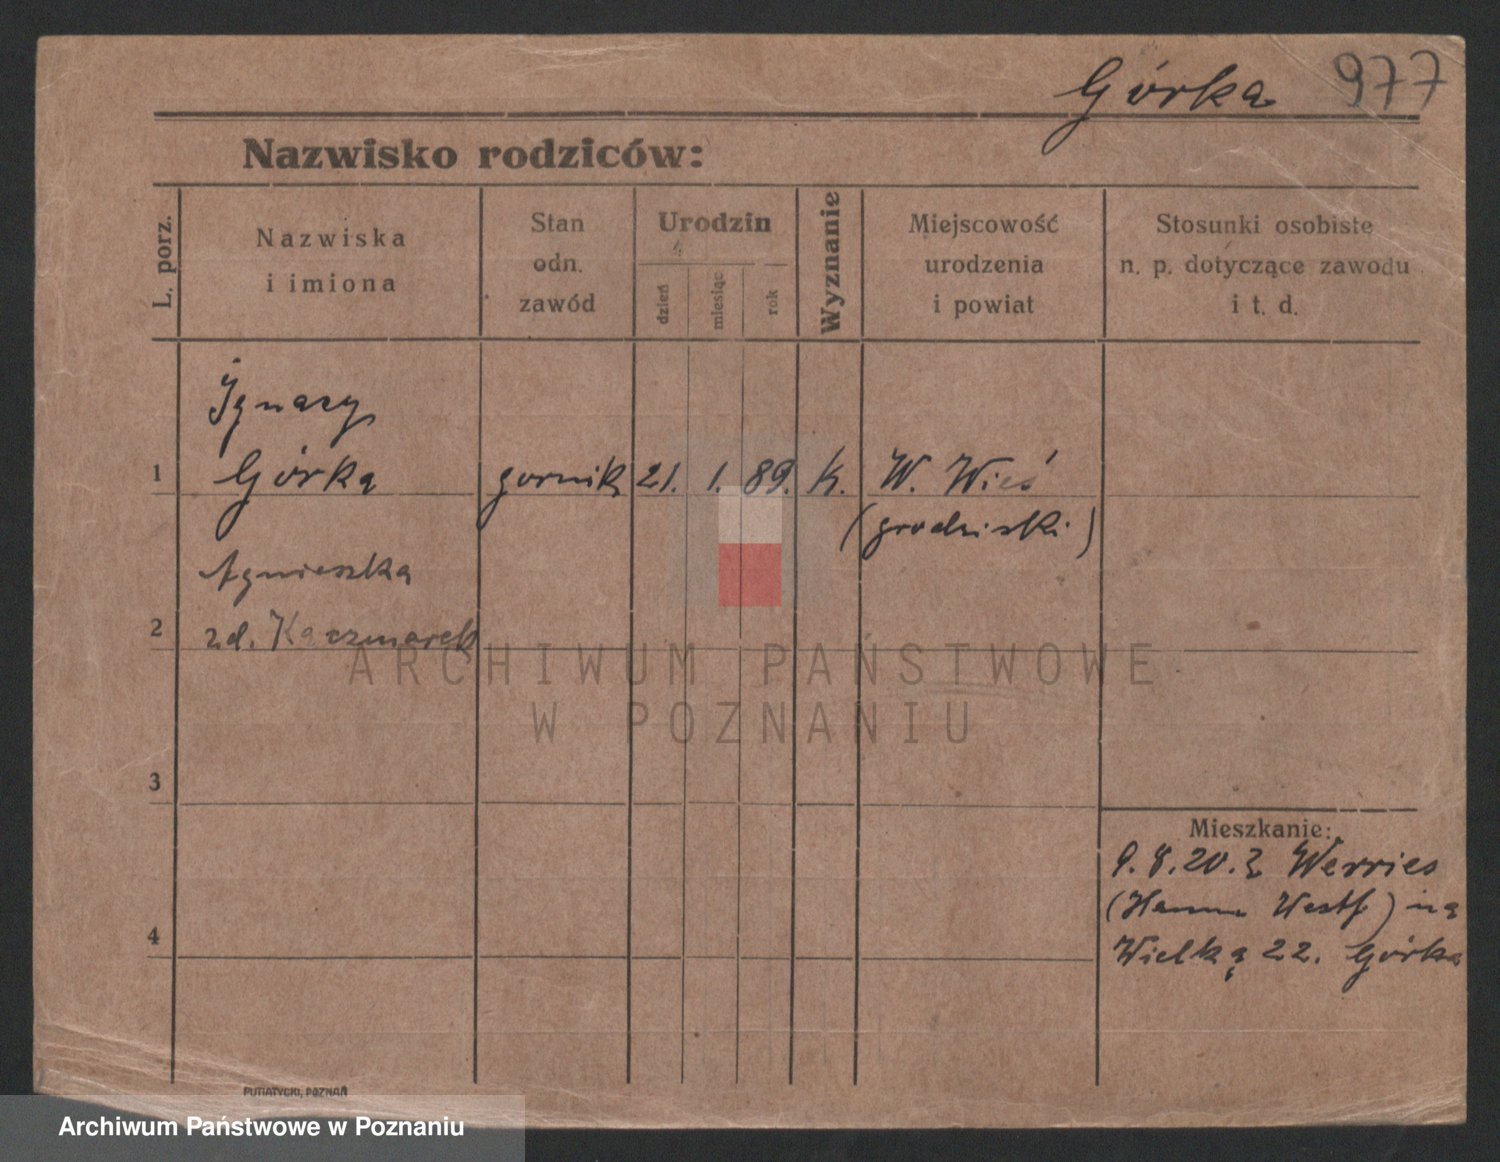 Górka 977
Nazwisko rodziców:
L. porz.
Nazwiska
i imiona
Stan
odn.
zawód
Urodzin
dzień
miesiąc
rok
Wyznanie
Miejscowość
urodzenia
i powiat
Stosunki osobiste
n. p. dotyczące zawodu
i t. d.
Ignacy
1 Górka gornik 21. 1. 89. K. W. Wieś
(grodziski)
Agnieszka
2 zd. Kaczmarek
ARCHIWUM PAŃSTWOWE
W POZNANIU
3
Mieszkanie:
9.8.20. z Werries
(Hamm Westf) na
4
Wielką 22. Górka
PUTIATYCKI, POZNAŃ
Archiwum Państwowe w Poznaniu